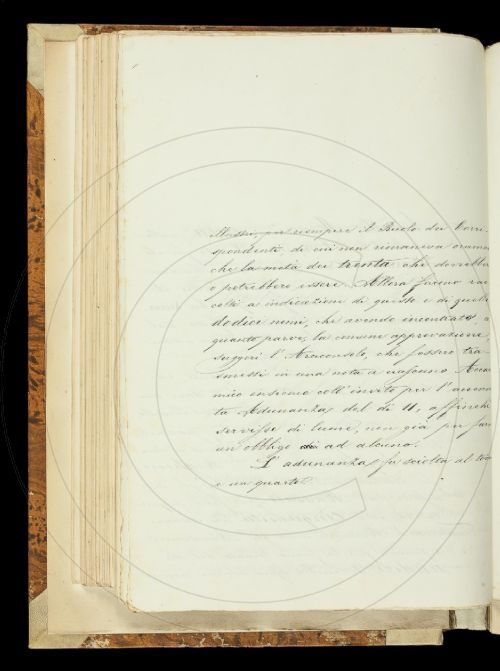 per riempire il Ruolo dei Corri-
spondenti, di cui non rimaneva oramai
che la metà dei trenta che dovrebber
o potrebbero essere. Allora furono rac
colti a indicazione di questo e di quello
dodici nomi, che avendo incontrato a
quanto parve, la comune approvazione,
suggerì l'Arciconsolo, che fossero tra
smessi in una nota a ciascuno Acca
mico insieme coll'invito per l'
ta Adunanza del dì 11, affinchè
servisse di lume, non già per fare
un obbligo ad alcuno.
L'adunanza fu sciolta al tocco
e un quarto.